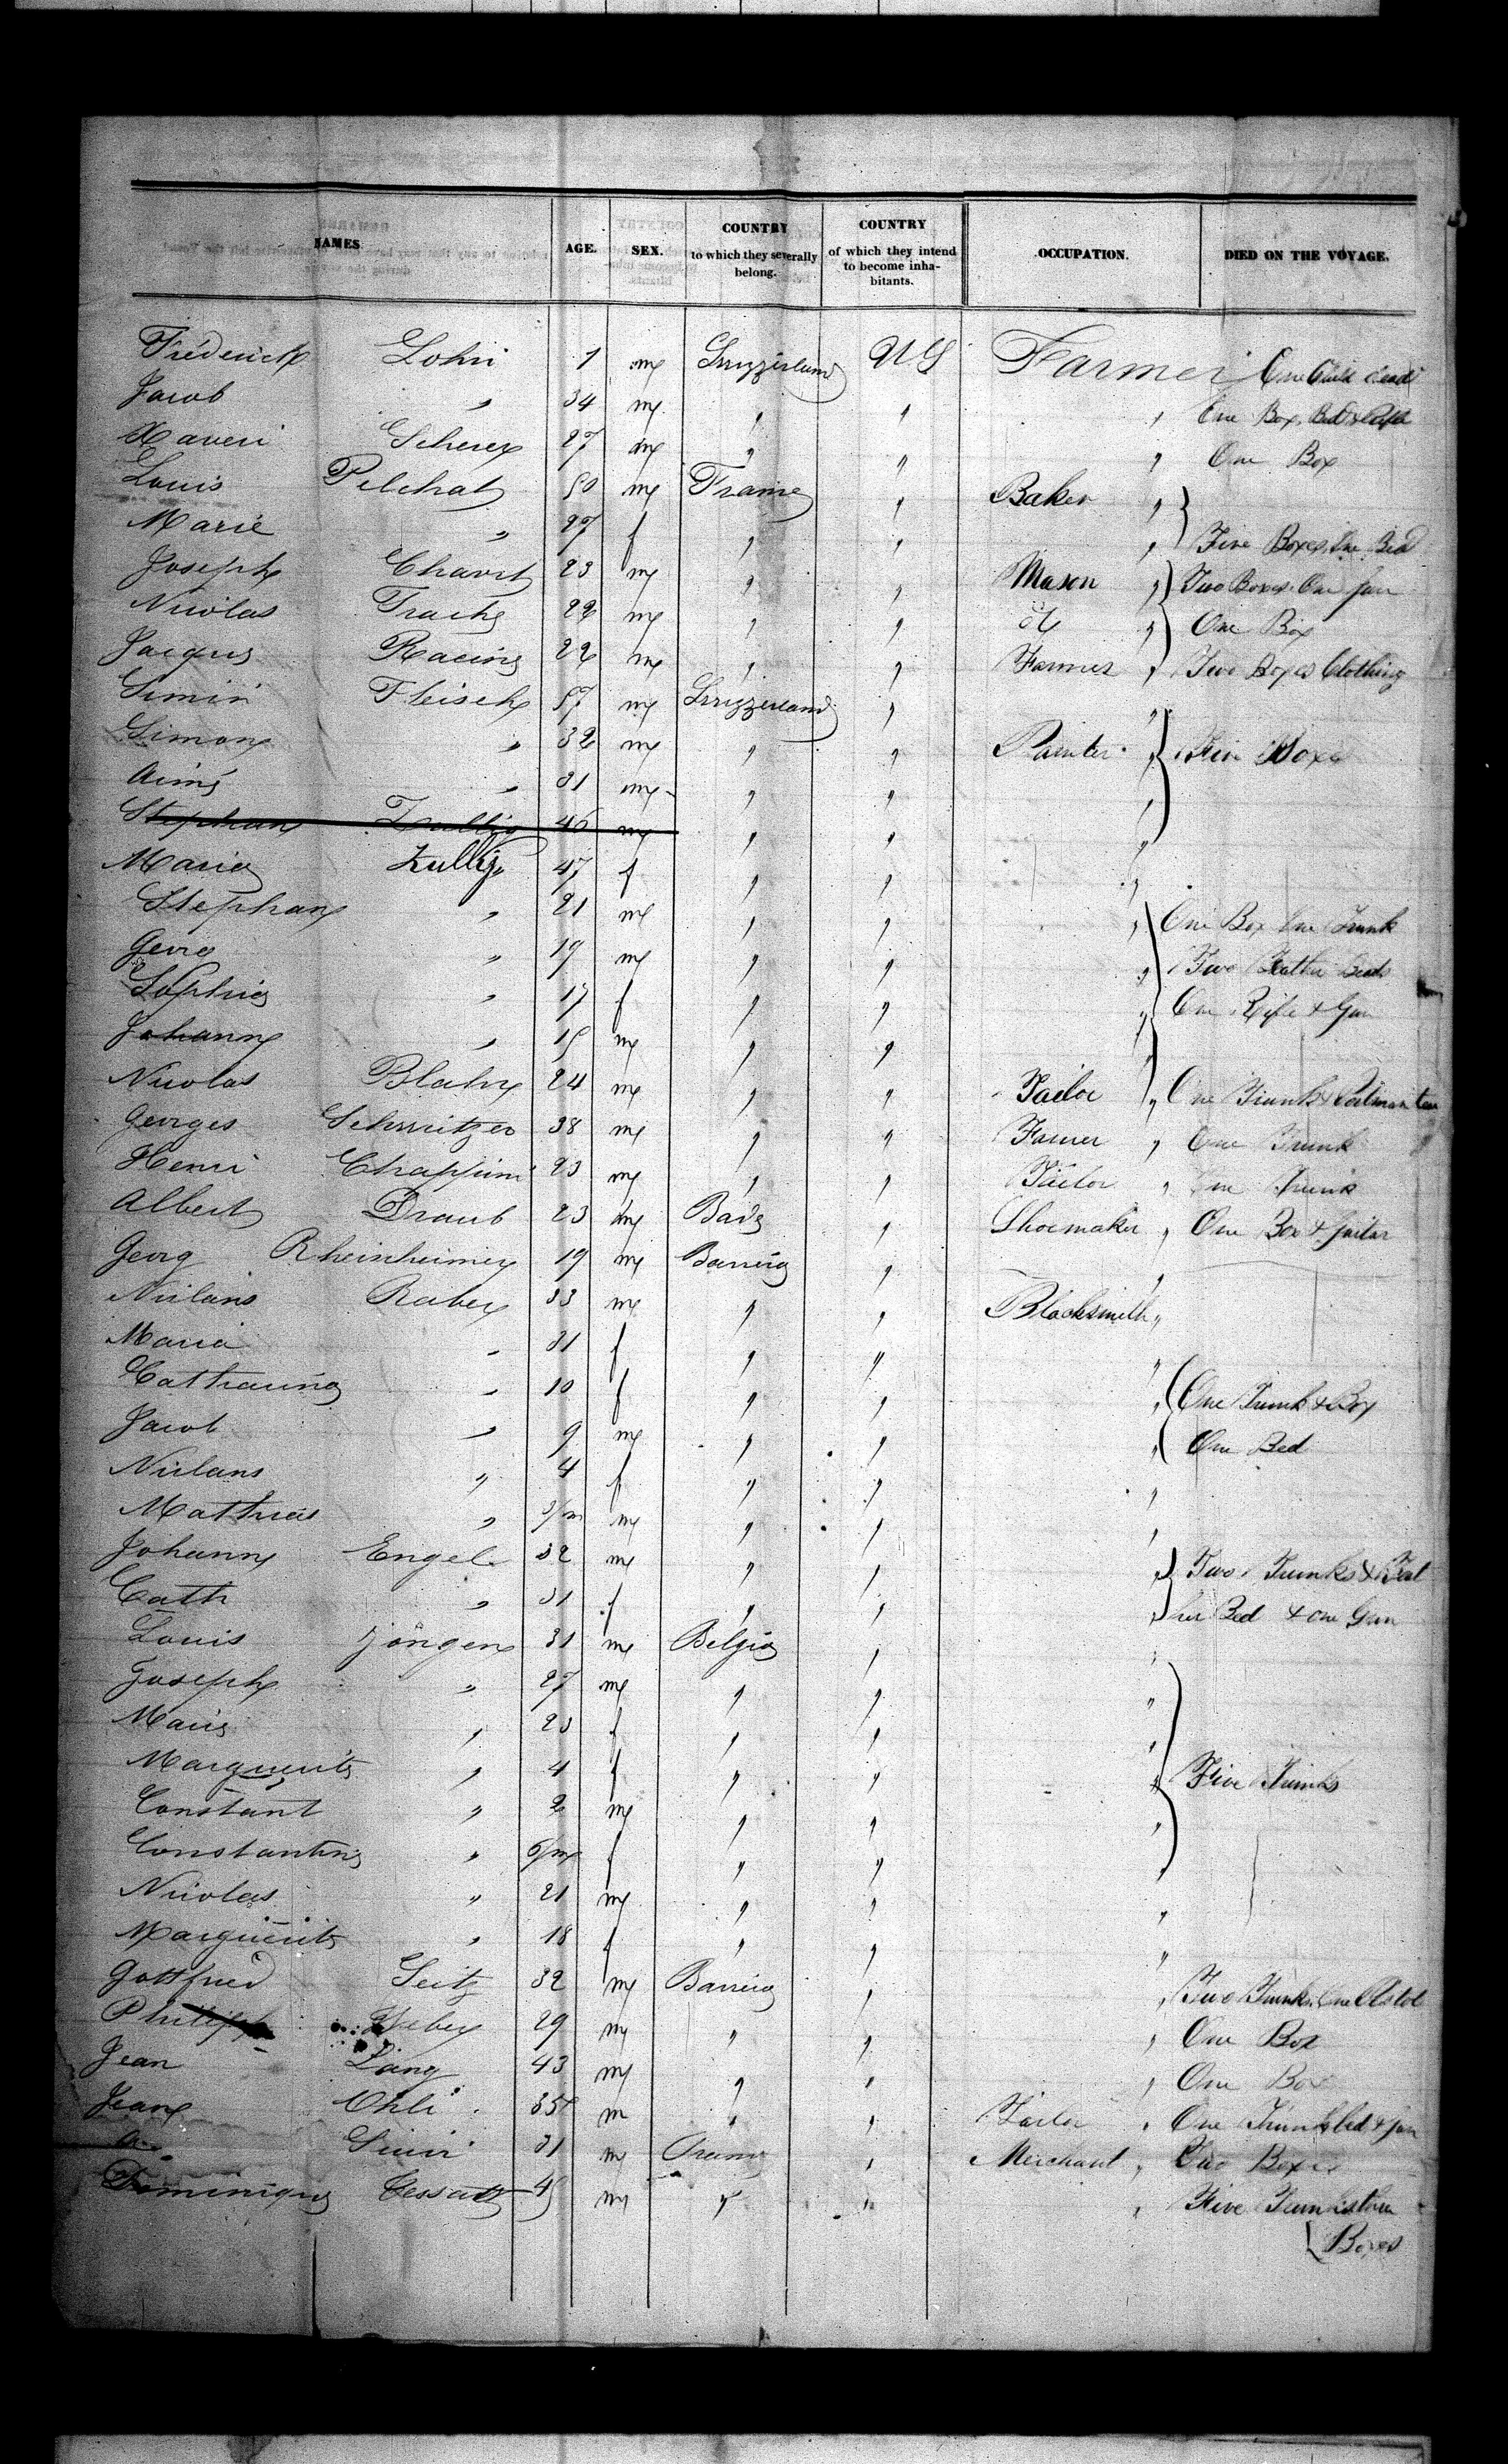 NAMES AGE. SEX. COUNTRY to which they severally belong. COUNTRY of which they intend to become inhabitants. OCCUPATION. DIED ON THE VOYAGE.
Frederick Lohri 1 m Swizzerland US Farmer One Child dead
Jacob " 34 m " " " One Box, Bed &
Xaveri Scherer 27 m " " " One Box
Louis Pelchat 50 m France " Baker "
Marie " 27 f " " " Five Boxes, One Bed
Joseph 23 m " " Mason " Two Boxes, One Gun
Nicolas 22 m " " " One Box
Jacques Racine 22 m " " Farmer " Two Boxes Clothing
Simon Fleisch 57 m Swizzerland " "
Simon " 32 m " " Painter " Five Boxes
Aimé " 31 m " " "
Stephan Zullig 46 m " " "
Maria Zullig " 47 f " " "
Stephan " 21 m " " " One Box One Trunk
Georg " 19 m " " " Two Feather Beds
Sophie " 17 f " " " One Rifle & Gun
Johann " 15 m " " "
Nicolas 24 m " " Tailor " One Trunk &
Georges Schwitzer 38 m " " Farmer " One Trunk
Henri Chappuni 23 m " " Tailor " One Trunk
Albert Draub 23 m Bade " Shoemaker " One Box &
Georg Rheinheimer 19 m Bavaria " "
Raber 33 m " " Blacksmith "
Maria " 31 f " " "
Catharina " 10 f " " " One Trunk & Box
Jacob " 9 m " " " One Bed
" 4 f " " "
Mathias " 3/m m " " "
Johann Engel 32 m " " " Two Trunks & Feat
Cath " 31 f " " " her Bed & one Gun
Louis Jöngen 31 m Belgia " "
Joseph " 27 m " " "
Marie " 23 f " " "
Marguerite " 4 f " " " Five Trunks
Constant " 2 m " " "
Constantine " 6/m f " " "
Nicolas " 21 m " " "
Marguerite " 18 f " " "
Gottfried Seitz 32 m Bavaria " " Two Trunks, One Pistol
Philipp Weber 29 m " " " One Box
Jean Lang 43 m " " " One Box
Jean Ohli 35 m " " Tailor " One Trunk bed & Gun
31 m France " Merchant " Two Boxes
Dominique m " " " Five Trunks three
Boxes